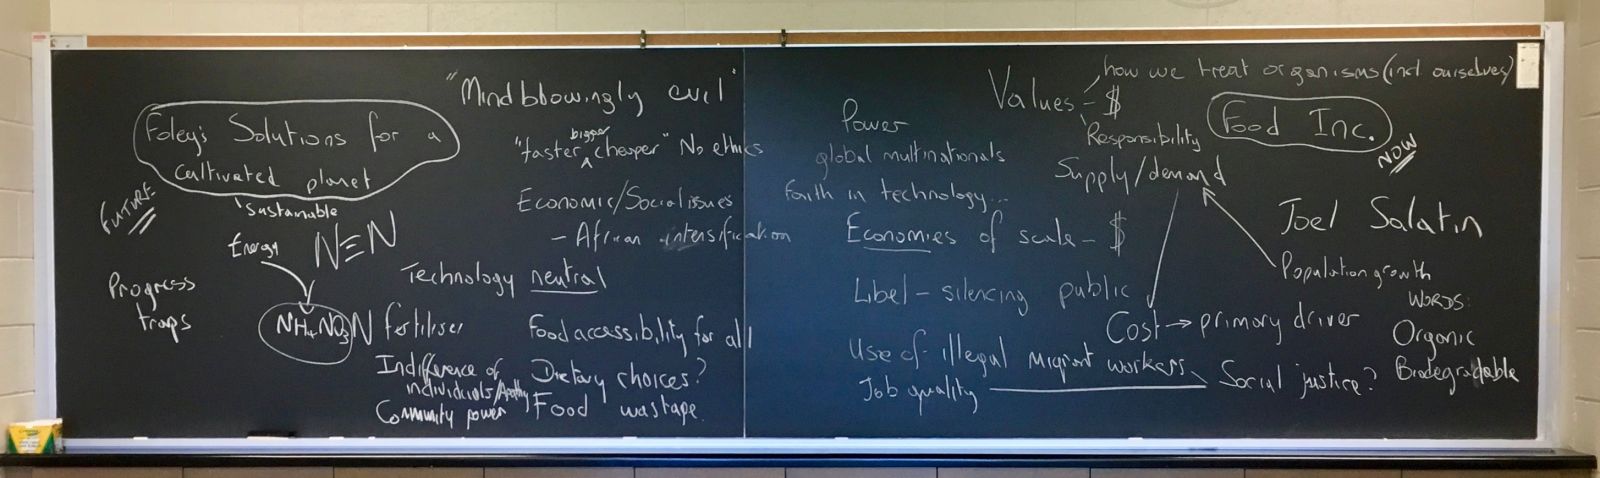 Foley's Solutions for a
cultivated planet
Sustainable
FUTURE
Energy
N≡N
Progress
traps
NH4NO3
N fertiliser
Technology neutral
Indifference of
individuals/Apathy
Community power
"Mindblowingly evil"
"faster bigger cheaper" No ethics
Economic/Social issues
- African intensification
Food accessibility for all
Dietary choices?
Food wastage.
Power
global multinationals
Faith in technology...
Economies of scale - $
Libel - silencing public
Use of illegal migrant workers
Job quality
Social justice?
Values - $
how we treat organisms (incl ourselves)
Responsibility
Supply/demand
Cost → primary driver
Population growth
Food Inc.
NOW
Joel Salatin
WORDS:
Organic
Biodegradable